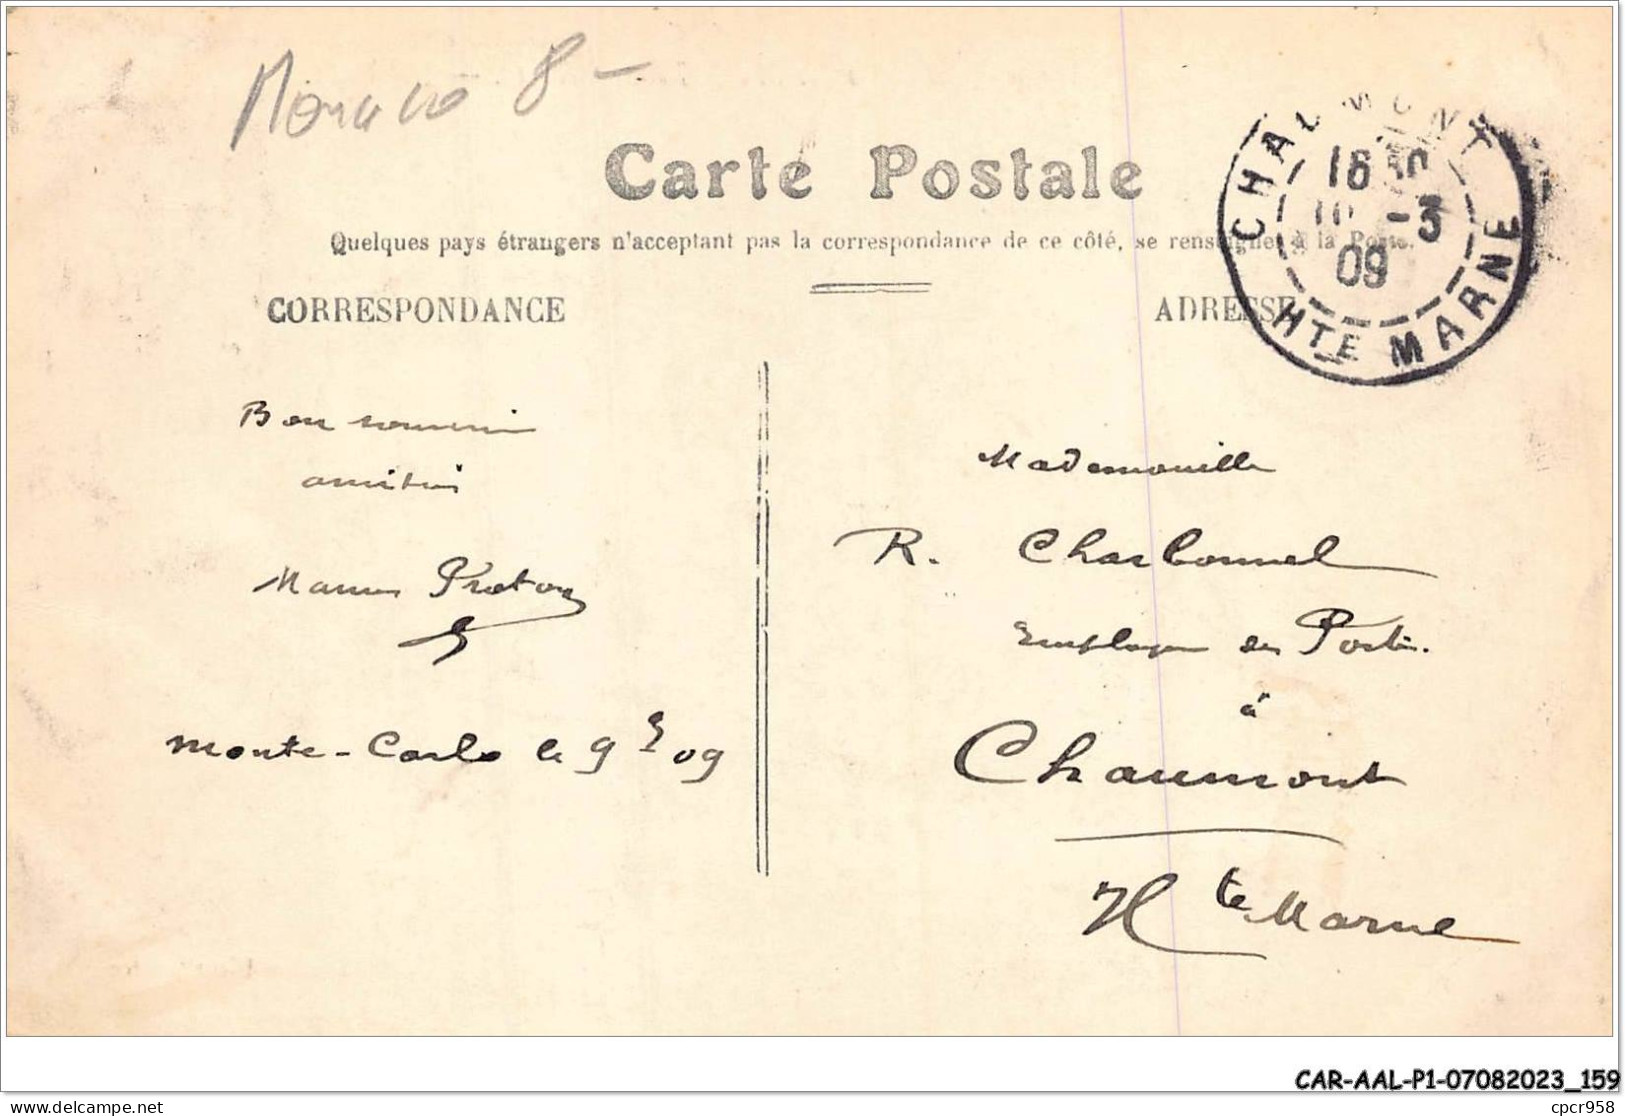 Monaco 8 -
Carte Postale
Quelques pays étrangers n'acceptent pas la correspondance de ce côté, se renseigner à la Poste.
CORRESPONDANCE
ADRESSE
CHAUMONT
16 30
10 -3
09
HTE MARNE
Bon souvenir
amitiés
Marius Preton
Monte-Carlo le 9 3 09
Mademoiselle
R. Charbonnel
Employée des Postes.
à
Chaumont
Hte Marne
CAR-AAL-P1-07082023_159
delcampe.net
cpcr958